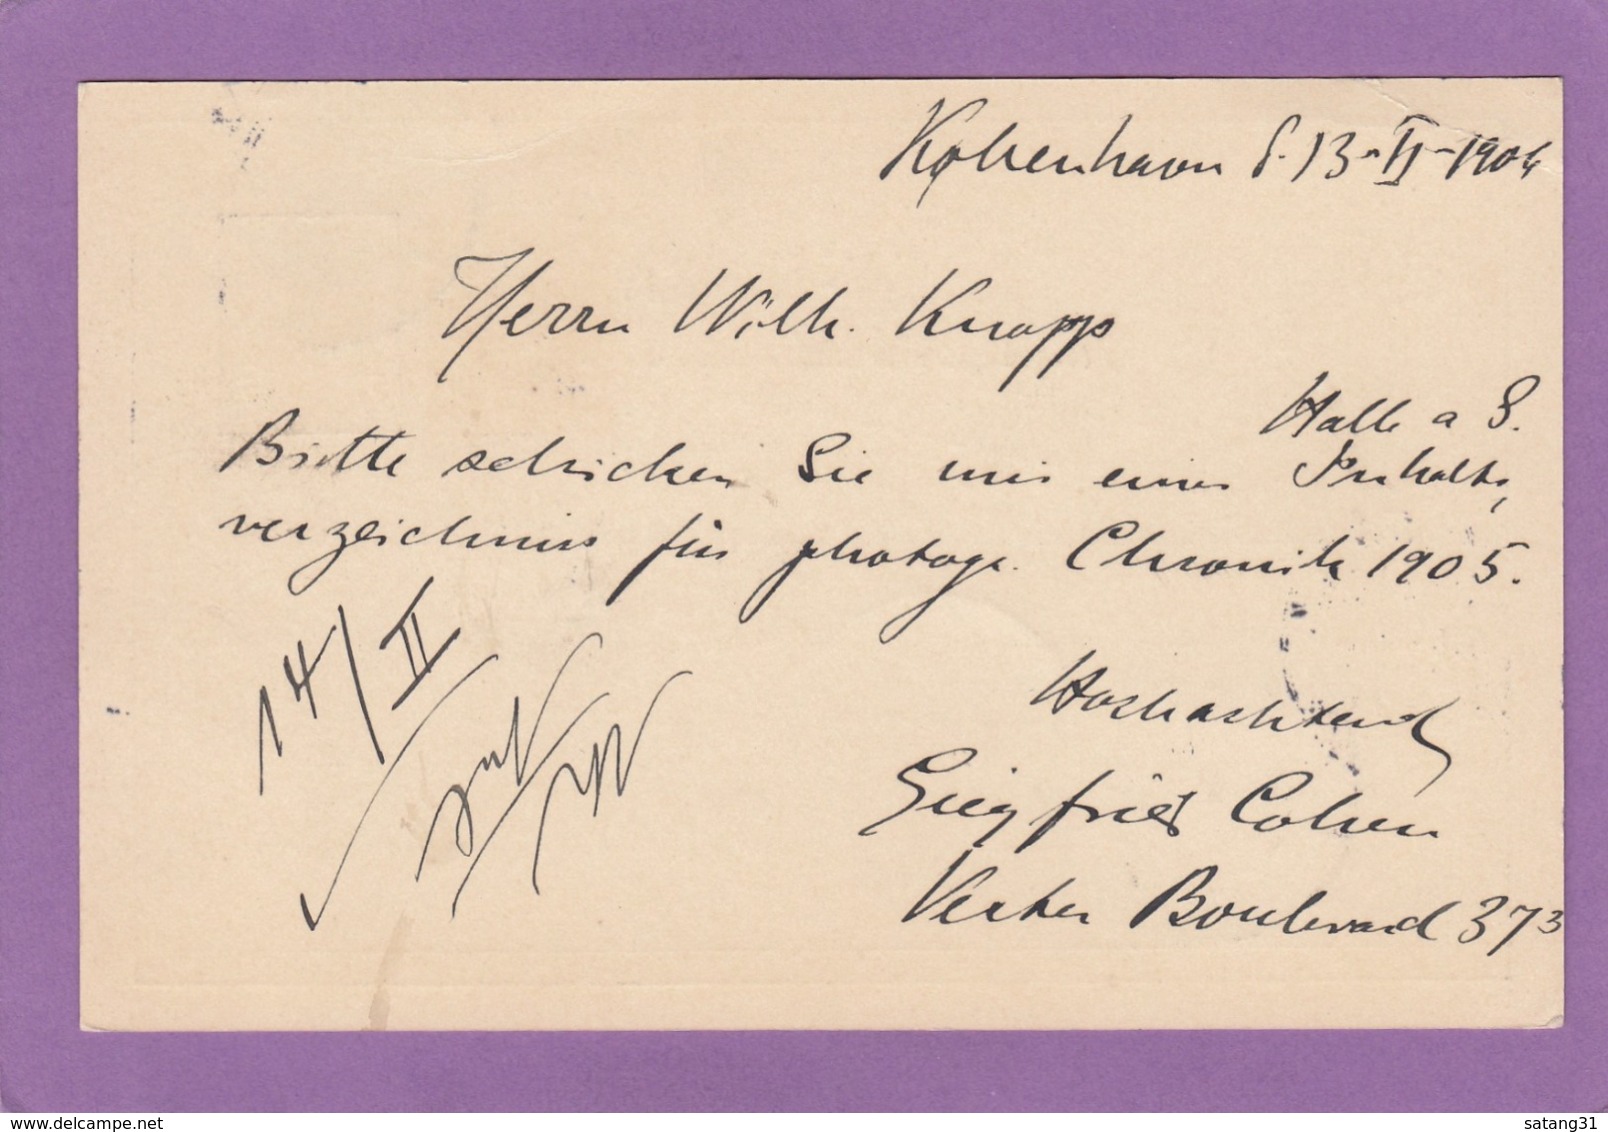 København d. 13-II-1904
Herrn Wilh. Knapp
Halle a S.
Bitte schicken Sie mir einen Inhalts,
verzeichniss für photogr. Chronik 1905.
14/II
Hochachtend
Siegfried Cohen
Vester Boulevard 37³
delcampe.net
satang31